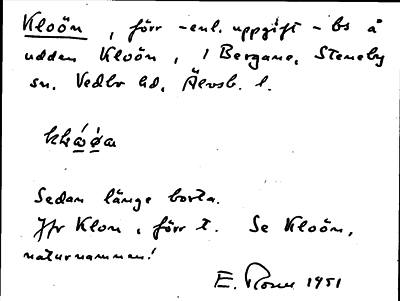 Kloön, förr - enl. uppgift - bs å
udden Kloön, i Bergane, Steneby
sn. Vedbo hd, Älvsb. l.
Sedan länge borta.
Jfr Klon, förr t. Se Kloön,
naturnamnen!
E. 1951